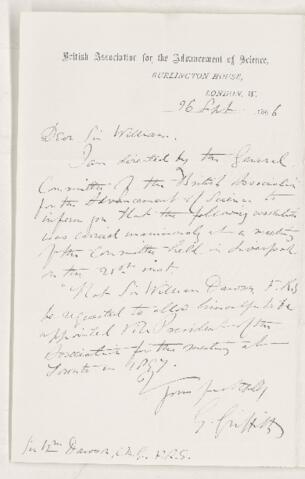 British Association for the Advancement of Science,
BURLINGTON HOUSE,
LONDON, W.
26 Sept. 1896
Dear Sir William,
I am directed by the General
Committee of the British Association
for the Advancement of Science to
inform you that the following resolution
was carried unanimously at a meeting
of the Committee held in Liverpool
on the 21st inst.
"That Sir William Dawson F.R.S
be requested to allow himself to be
appointed Vice President of the
Association for the meeting at
Toronto in 1897.
Yours faithfully
G. Griffith
Sir Wm Dawson, C.M.G., F.R.S.